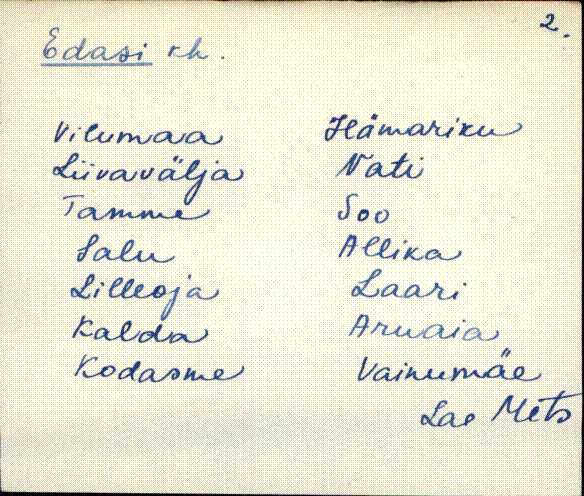 2.
Edasi rh.
Vilumaa
Liivavälja
Tamme
Salu
Lilleoja
Kalda
Kodasme
Hämariku
Nati
Soo
Allika
Laari
Aruaia
Vainumäe
Lae Mets